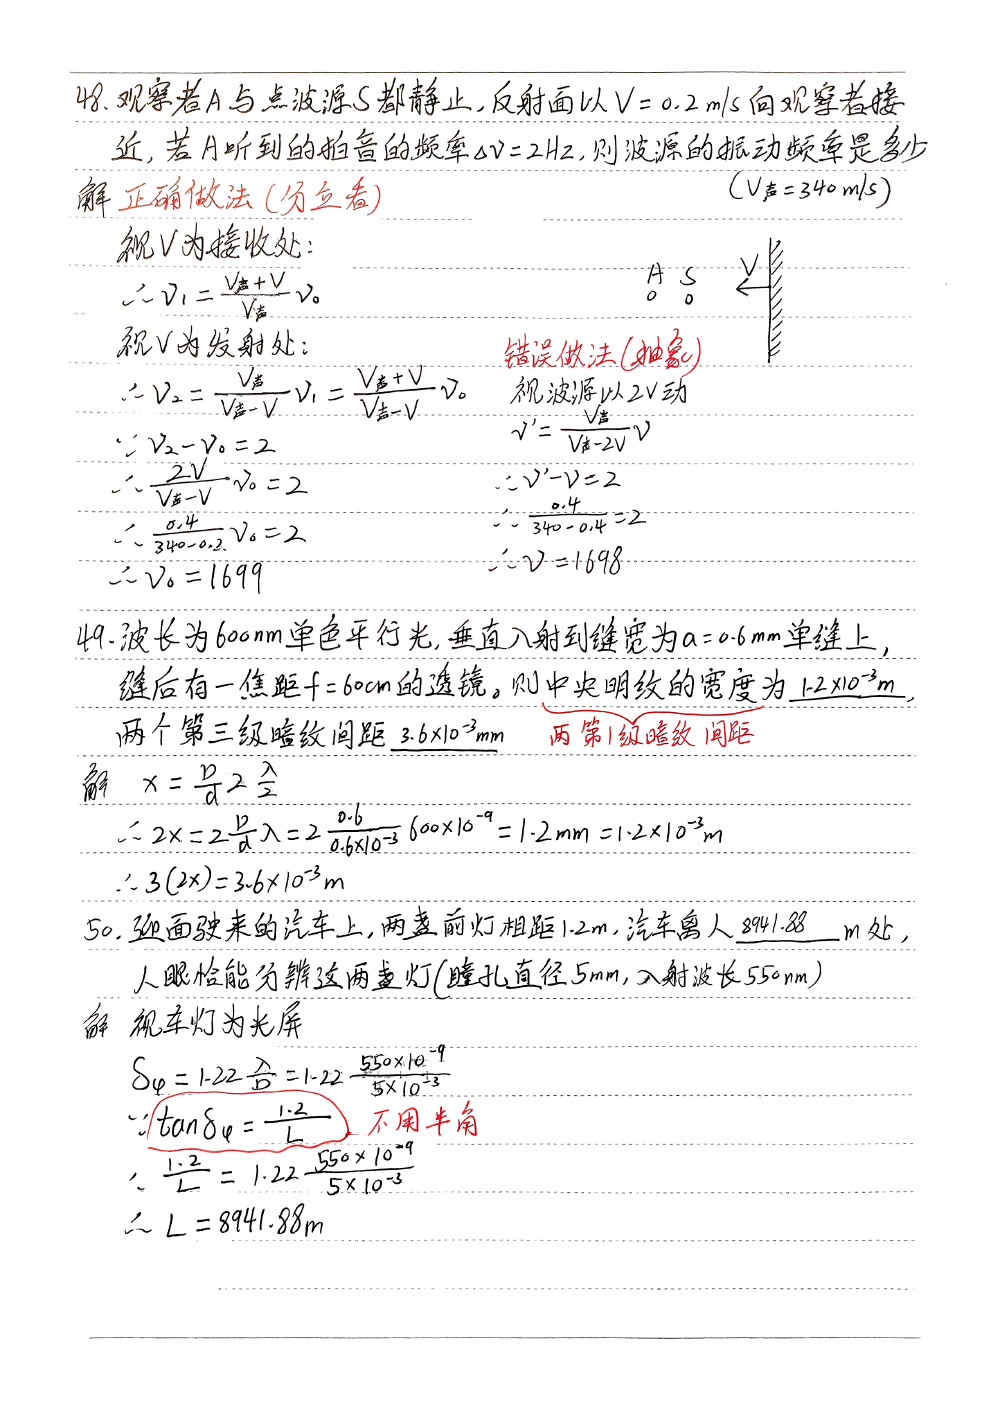 48. 观察者A与点波源S都静止,反射面以V=0.2m/s向观察者接
近,若A听到的拍音的频率Δν=2HZ,则波源的振动频率是多少
(V声=340m/s)
解 正确做法(分立看)
视V为接收处:
A S V
∴ν₁=(V声+V)/V声 ν₀
视V为发射处:
错误做法(抽象)
∴ν₂=V声/(V声-V) ν₁=(V声+V)/(V声-V) ν₀
视波源以2V动
ν'=V声/(V声-2V) ν
∵ν₂-ν₀=2
∴2V/(V声-V) ν₀=2
∴ν'-ν=2
∴0.4/(340-0.2) ν₀=2
∴0.4/(340-0.4)=2
∴ν₀=1699
∴ν=1698
49.波长为600nm单色平行光,垂直入射到缝宽为a=0.6mm单缝上,
缝后有一焦距f=60cm的透镜。则中央明纹的宽度为1.2×10⁻³m,
两个第三级暗纹间距3.6×10⁻³mm 两第1级暗纹间距
解 x=D/d 2 λ/2
∴2x=2 D/d λ=2 0.6/(0.6×10⁻³) 600×10⁻⁹=1.2mm=1.2×10⁻³m
∴3(2x)=3.6×10⁻³m
50.迎面驶来的汽车上,两盏前灯相距1.2m,汽车离人8941.88m处,
人眼恰能分辨这两盏灯(瞳孔直径5mm,入射波长550nm)
解 视车灯为光屏
δφ=1.22 λ/D=1.22 (550×10⁻⁹)/(5×10⁻³)
∵tanδφ=1.2/L 不用半角
∴1.2/L=1.22 (550×10⁻⁹)/(5×10⁻³)
∴L=8941.88m